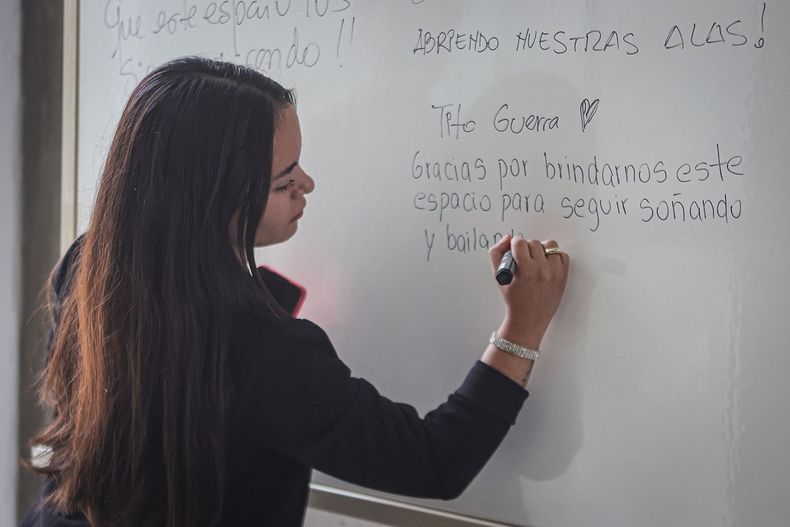 Que este espacio los
siga
ando !!
ABRIENDO NUESTRAS ALAS!
Tito Guerra
Gracias por brindarnos este
espacio para seguir soñando
y bailando